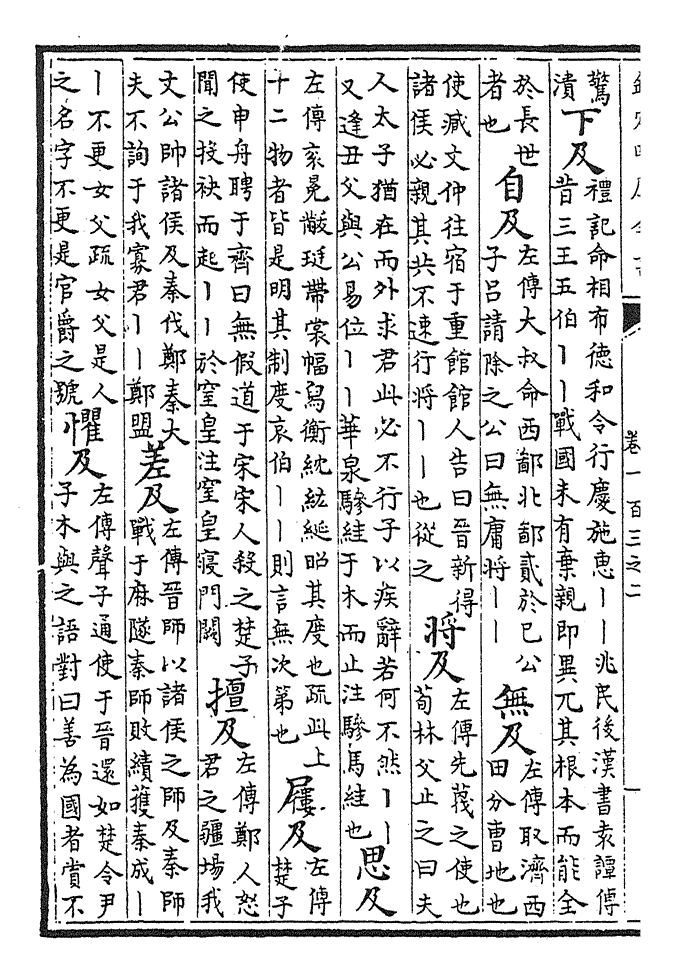 卷一百三之二
驚
潰
下及
禮記命相布德和令行慶施惠丨丨兆民後漢書袁譚傳
昔三王五伯丨丨戰國未有棄親即異兀其根本而能全
於長世
者也
自及
左傳大叔命西鄙北鄙貳於已公
子呂請除之公曰無庸將丨丨
無及
左傳取濟西
田分曹地也
使臧文仲往宿于重館館人告曰晉新得
諸侯必親其共不速行將丨丨也從之
將及
左傳先蔑之使也
荀林父止之曰夫
人太子猶在而外求君此必不行子以疾辭若何不然丨丨
又逢丑父與公易位丨丨華泉驂絓于木而止注驂馬絓也
思及
左傳衮冕黻珽帶裳幅舄衡紞紘綖昭其度也疏此上
十二物者皆是明其制度哀伯丨丨則言無次第也
屨及
左傳
楚子
使申舟聘于齊曰無假道于宋宋人殺之楚子
聞之投袂而起丨丨於窒皇注窒皇寢門闕
擅及
左傳鄭人怒
君之疆場我
文公帥諸侯及秦伐鄭秦大
夫不詢于我寡君丨丨鄭盟
差及
左傳晉師以諸侯之師及秦師
戰于麻隧秦師敗績獲秦成丨
丨不更女父疏女父是人
之名字不更是官爵之號
懼及
左傳聲子通使于晉還如楚令尹
子木與之語對曰善為國者賞不